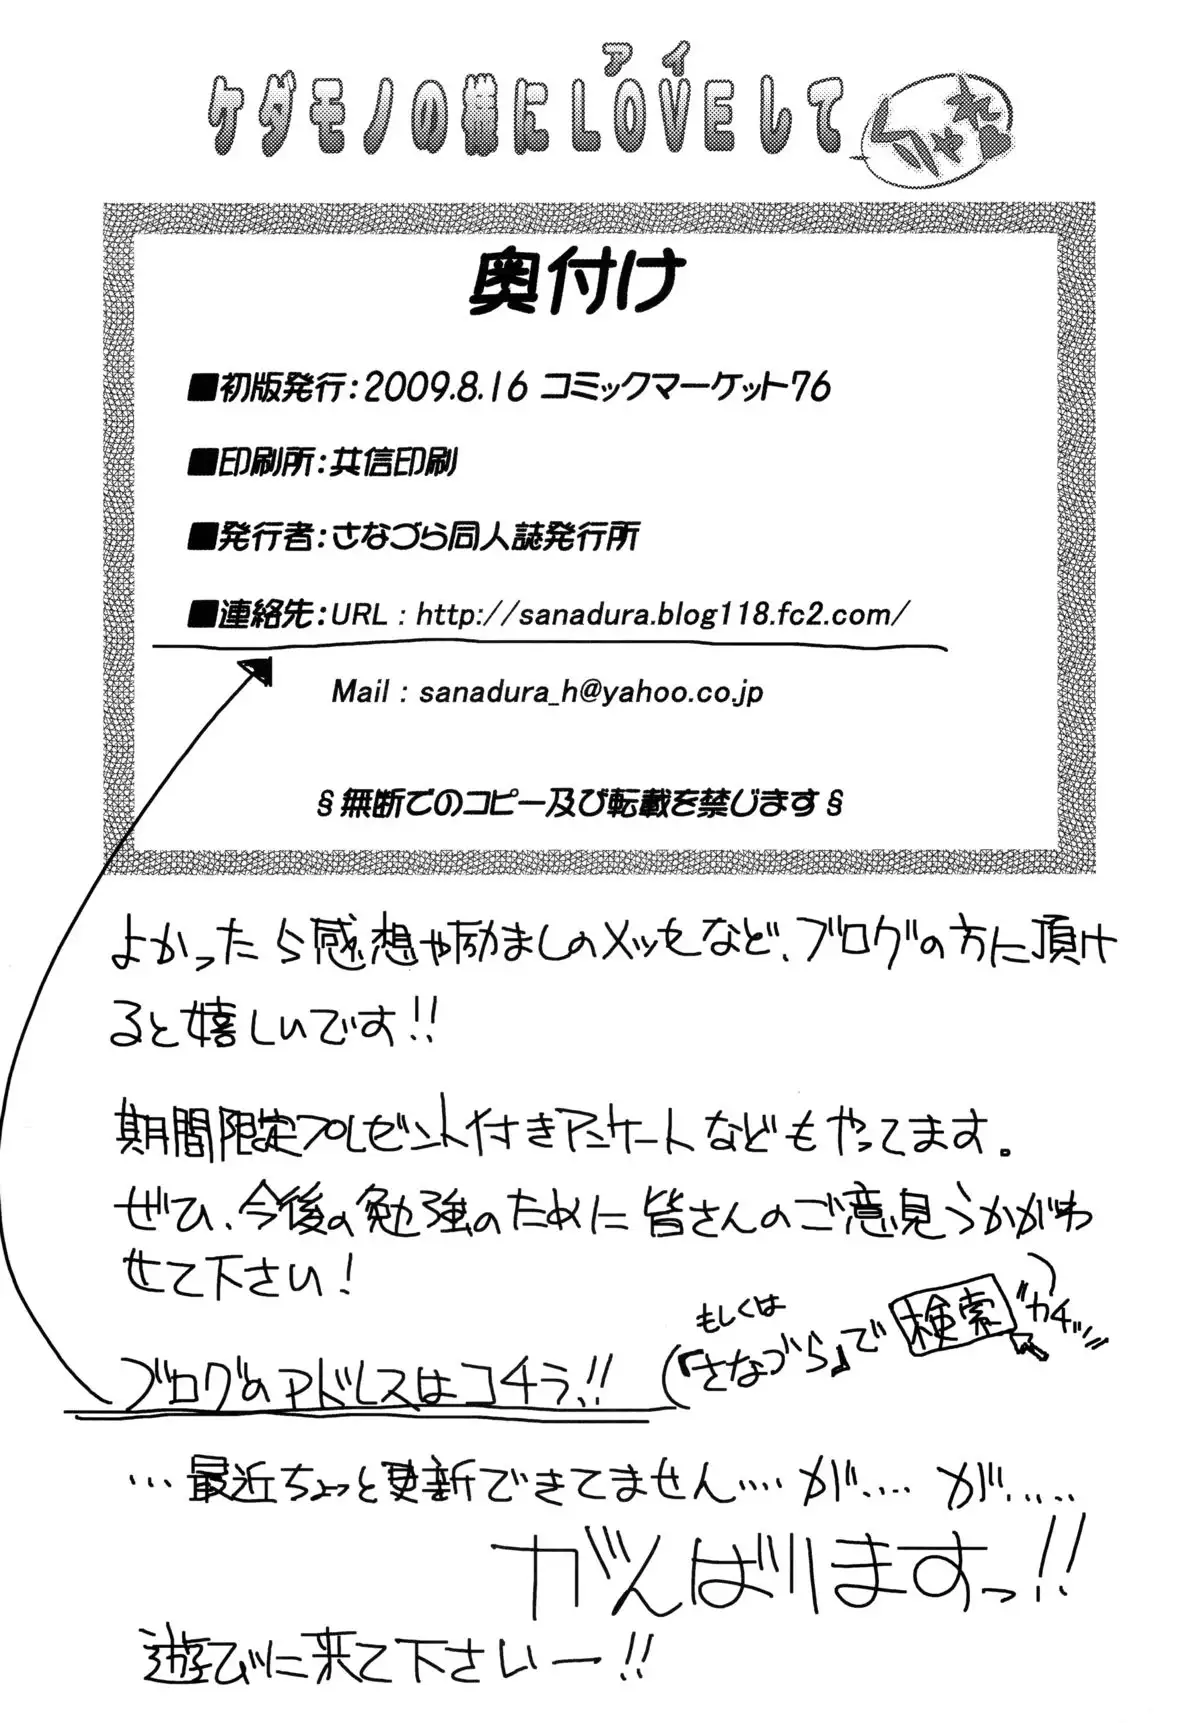 アイ
ケダモノの様にLOVEして
奥付け
■初版発行：2009.8.16 コミックマーケット76
■印刷所：共信印刷
■発行者：さなづら同人誌発行所
■連絡先：URL : http://sanadura.blog118.fc2.com/
Mail : sanadura_h@yahoo.co.jp
§無断でのコピー及び転載を禁じます§
よかったら感想や励ましのメッセなど、ブログの方に頂け
ると嬉しいです!!
期間限定プレゼント付きアンケートなどもやってます。
ぜひ、今後の勉強のために皆さんのご意見うかがわ
せて下さい!
ブログのアドレスはコチラ!!
(もしくは
『さなづら』で検索 カチッ)
…最近ちょっと更新できてません…. が…. が…..
がんばりますっ!!
遊びに来て下さいー!!